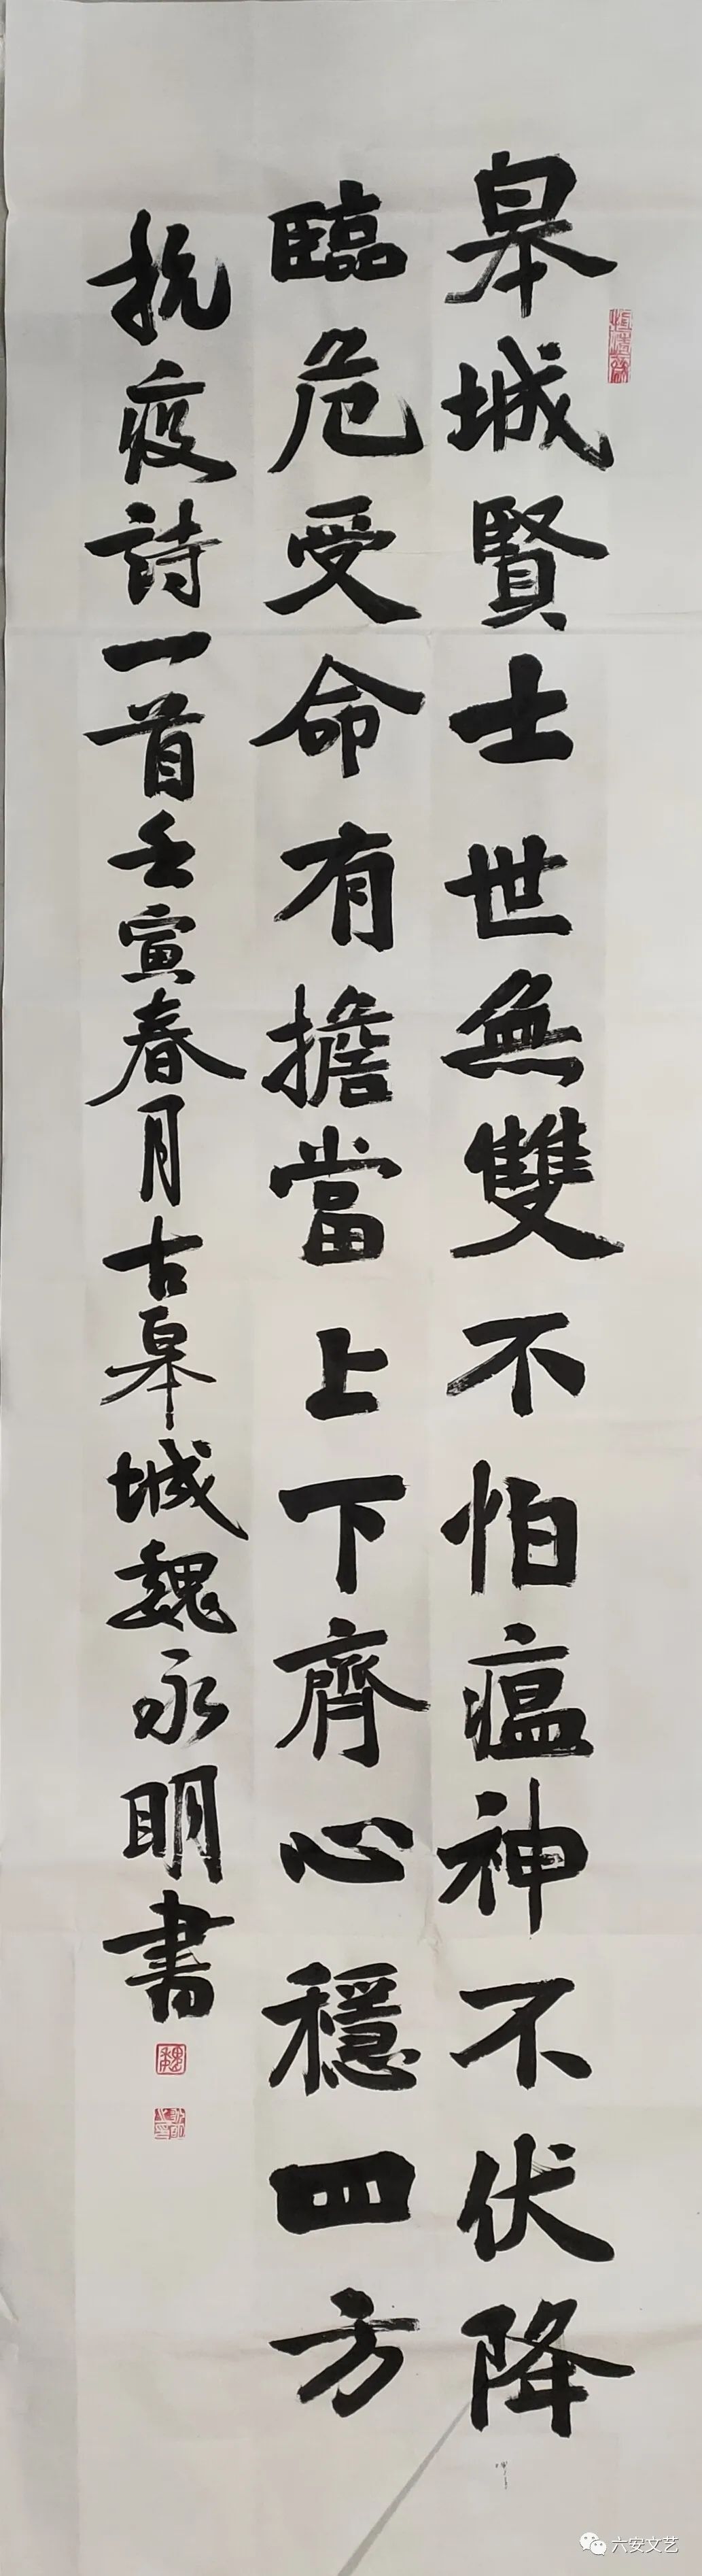 皋城賢士世無雙不怕瘟神不伏降
臨危受命有擔當上下齊心穩四方
抗疫詩一首壬寅春月古皋城魏永明書
魏
六安文艺